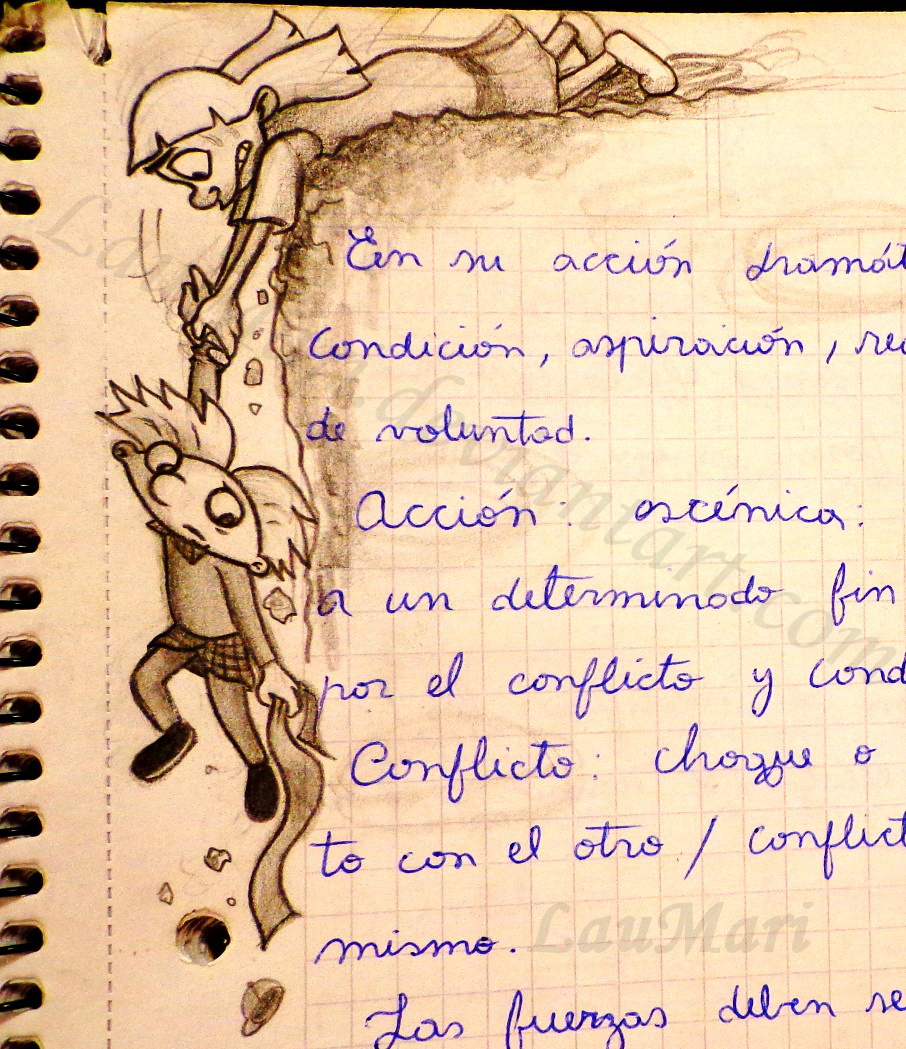 En su acción dramát
Condición, aspiración, re
de voluntad.
Acción : escénica:
a un determinado fin
por el conflicto y cond
Conflicto: choque o
to con el otro / conflict
mismo.
LauMari
Las fuerzas deben se
deviantart.com